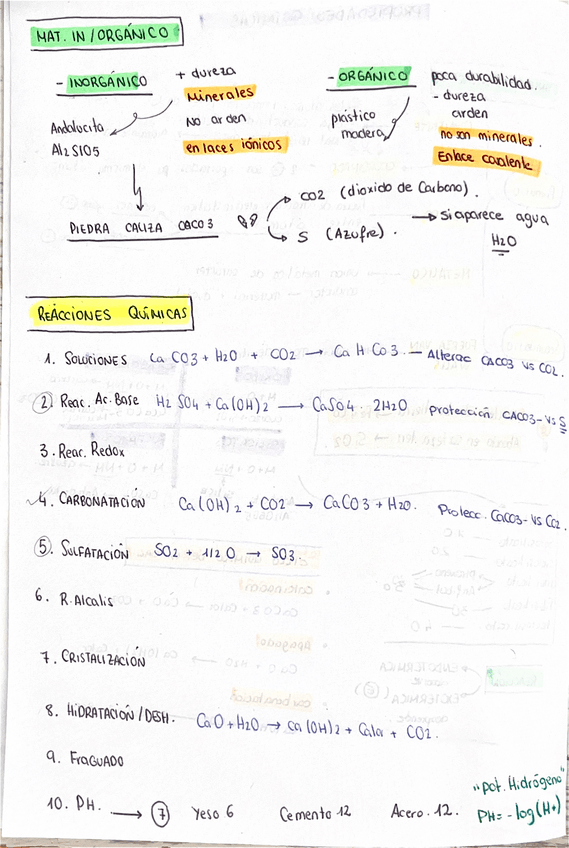 MAT. IN/ORGÁNICO
- INORGÁNICO
+ dureza
Minerales
No arden
enlaces iónicos
Andalucita
Al2SiO5
- ORGÁNICO
poca durabilidad.
- dureza
arden
no son minerales.
Enlace covalente
plástico
madera
PIEDRA CALIZA CACO3
CO2 (dioxido de Carbono).
S (Azufre).
→ si aparece agua
H2O
REACCIONES QUÍMICAS
1. SOLUCIONES Ca CO3 + H2O + CO2 → Ca H CO3. — Alterac CACO3 VS CO2.
2. Reac. Ac. Base H2 SO4 + Ca(OH)2 → CaSO4. 2H2O protección CACO3-VS S
3. Reac. Redox
4. CARBONATACIÓN Ca(OH)2 + CO2 → CaCO3 + H2O. Protecc. CaCO3-VS CO2.
5. SULFATACIÓN SO2 + 1/2 O → SO3.
6. R. Alcalis
7. CRISTALIZACIÓN
8. HIDRATACIÓN/DESH. CaO + H2O → Ca(OH)2 + Calor + CO2.
9. FRAGUADO
10. PH. → 7 Yeso 6 Cemento 12 Acero. 12.
"pot. Hidrógeno"
PH = - log(H+)